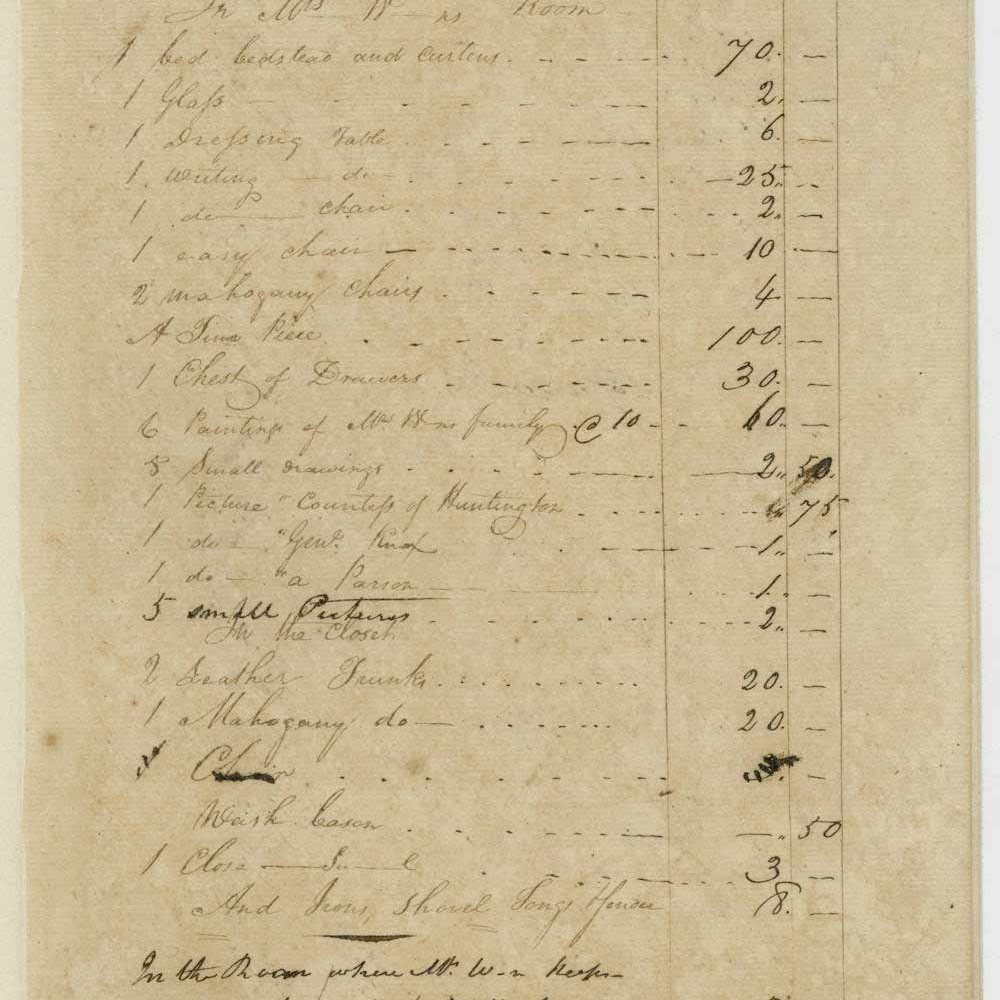 In Mrs W—ns Room
1 bed bedstead and Curtens. 70. —
1 Glass 2. —
1 Dressing Table 6. —
1. Writing — do — 25.. ..
1 do — chair 2. —
1 easy chair — 10 —
2 mahogany Chairs 4 —
A Time Piece 100. —
1 Chest of Drawers 30. —
6 Paintings of Mrs W—ns family @ 10 60. —
5 Small drawings 2.. 50.
1 Picture " Countess of Huntington 75
1 do — "Genl. Knox 1..
1 do — "a Parson 1. —
5 small Pictures 2.. —
In the Closet
2 Leather Trunks 20. —
1 Mahogany do — 20. —
Chair —
Wash bason — .. 50
1 Close 3 —
And Irons, Shovel Tongs & fender 8. —
In the Room where Mr. W—n Keeps